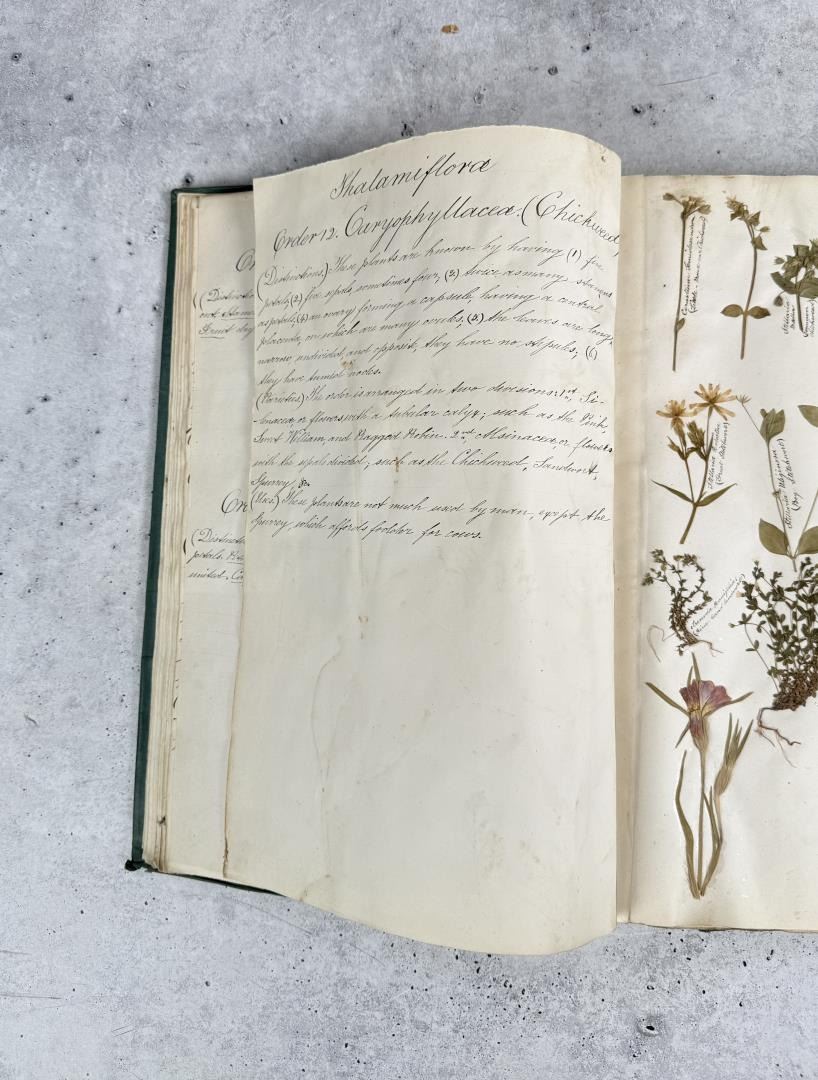 Thalamifloræ
Order 12. Caryophyllaceæ. (Chickweed)
(Distinctions.) These plants are known by having (1) five
petals, (2) five sepals, sometimes four, (3) twice as many stamens
as petals, (4) an ovary forming a capsule, having a central
placenta, on which are many ovules, (5) the leaves are long,
narrow undivided, and opposite, they have no stipules, (6)
they have tumid nodes.
(Varieties.) The order is arranged in two divisions: 1st, Si-
lenaceæ, or flowers with a tubular calyx; such as the Pink,
Sweet William, and Ragged Robin. 2nd, Alsinaceæ, or flowers
with the sepals divided; such as the Chickweed, Sandwort,
Spurrey, &c.
(Uses.) These plants are not much used by man, except the
Spurrey, which affords fodder for cows.
Or
(Distinctio
Or
(Distincti
petals.
united.
Stellaria
Stellaria